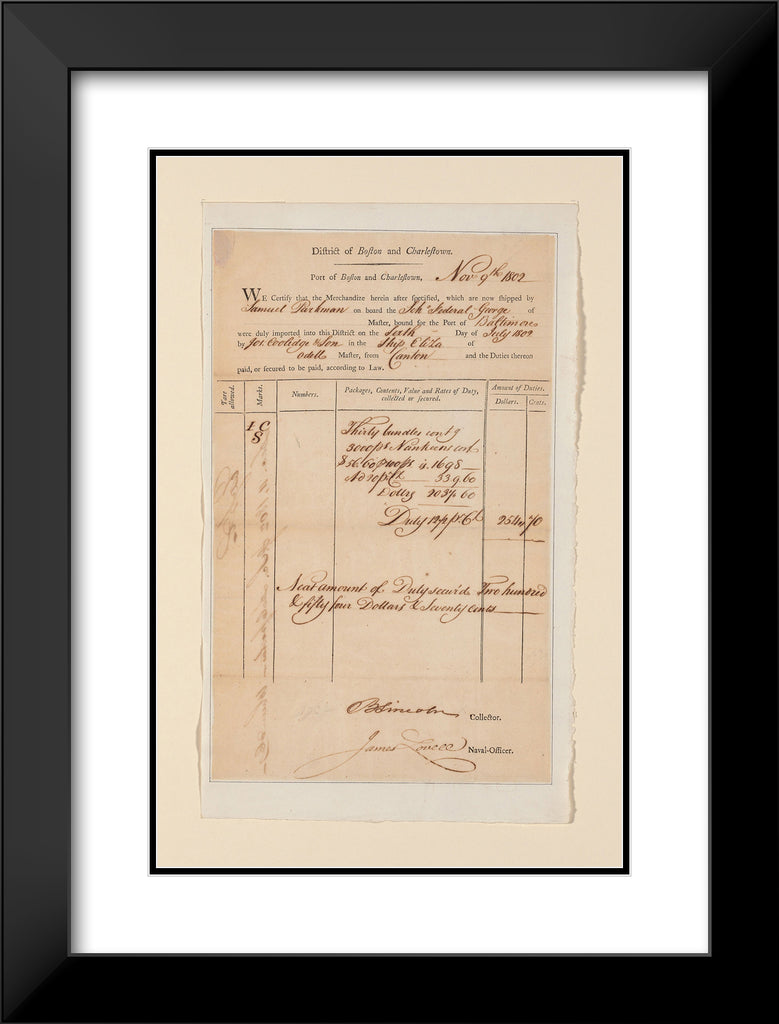 District of Boston and Charlestown.
Port of Boston and Charlestown, Nov 9th 1802
WE Certify that the Merchandize herein after specified, which are now shipped by
Samuel Parkman on board the Sch. Federal George of
Master, bound for the Port of Baltimore
were duly imported into this District on the Sixth Day of July 1802
by Jos. Coolidge & Son in the Ship Eliza of
Odell Master, from Canton and the Duties thereon
paid, or secured to be paid, according to Law.
Tare allowed. Marks. Numbers. Packages, Contents, Value and Rates of Duty, collected or secured. Amount of Duties.
Dollars. Cents.
I C
S
Thirty bundles contg
3000 ps Nankeens cost
$56.60 p 100 ps is 1698
Ad 20 p Ct 339.60
Dollrs 2037.60
Duty 12½ pr Ct 254 70
Neat amount of Duty secur'd Two hundred
& fifty four Dollars & Seventy cents
B Lincoln Collector.
James Lovell Naval-Officer.